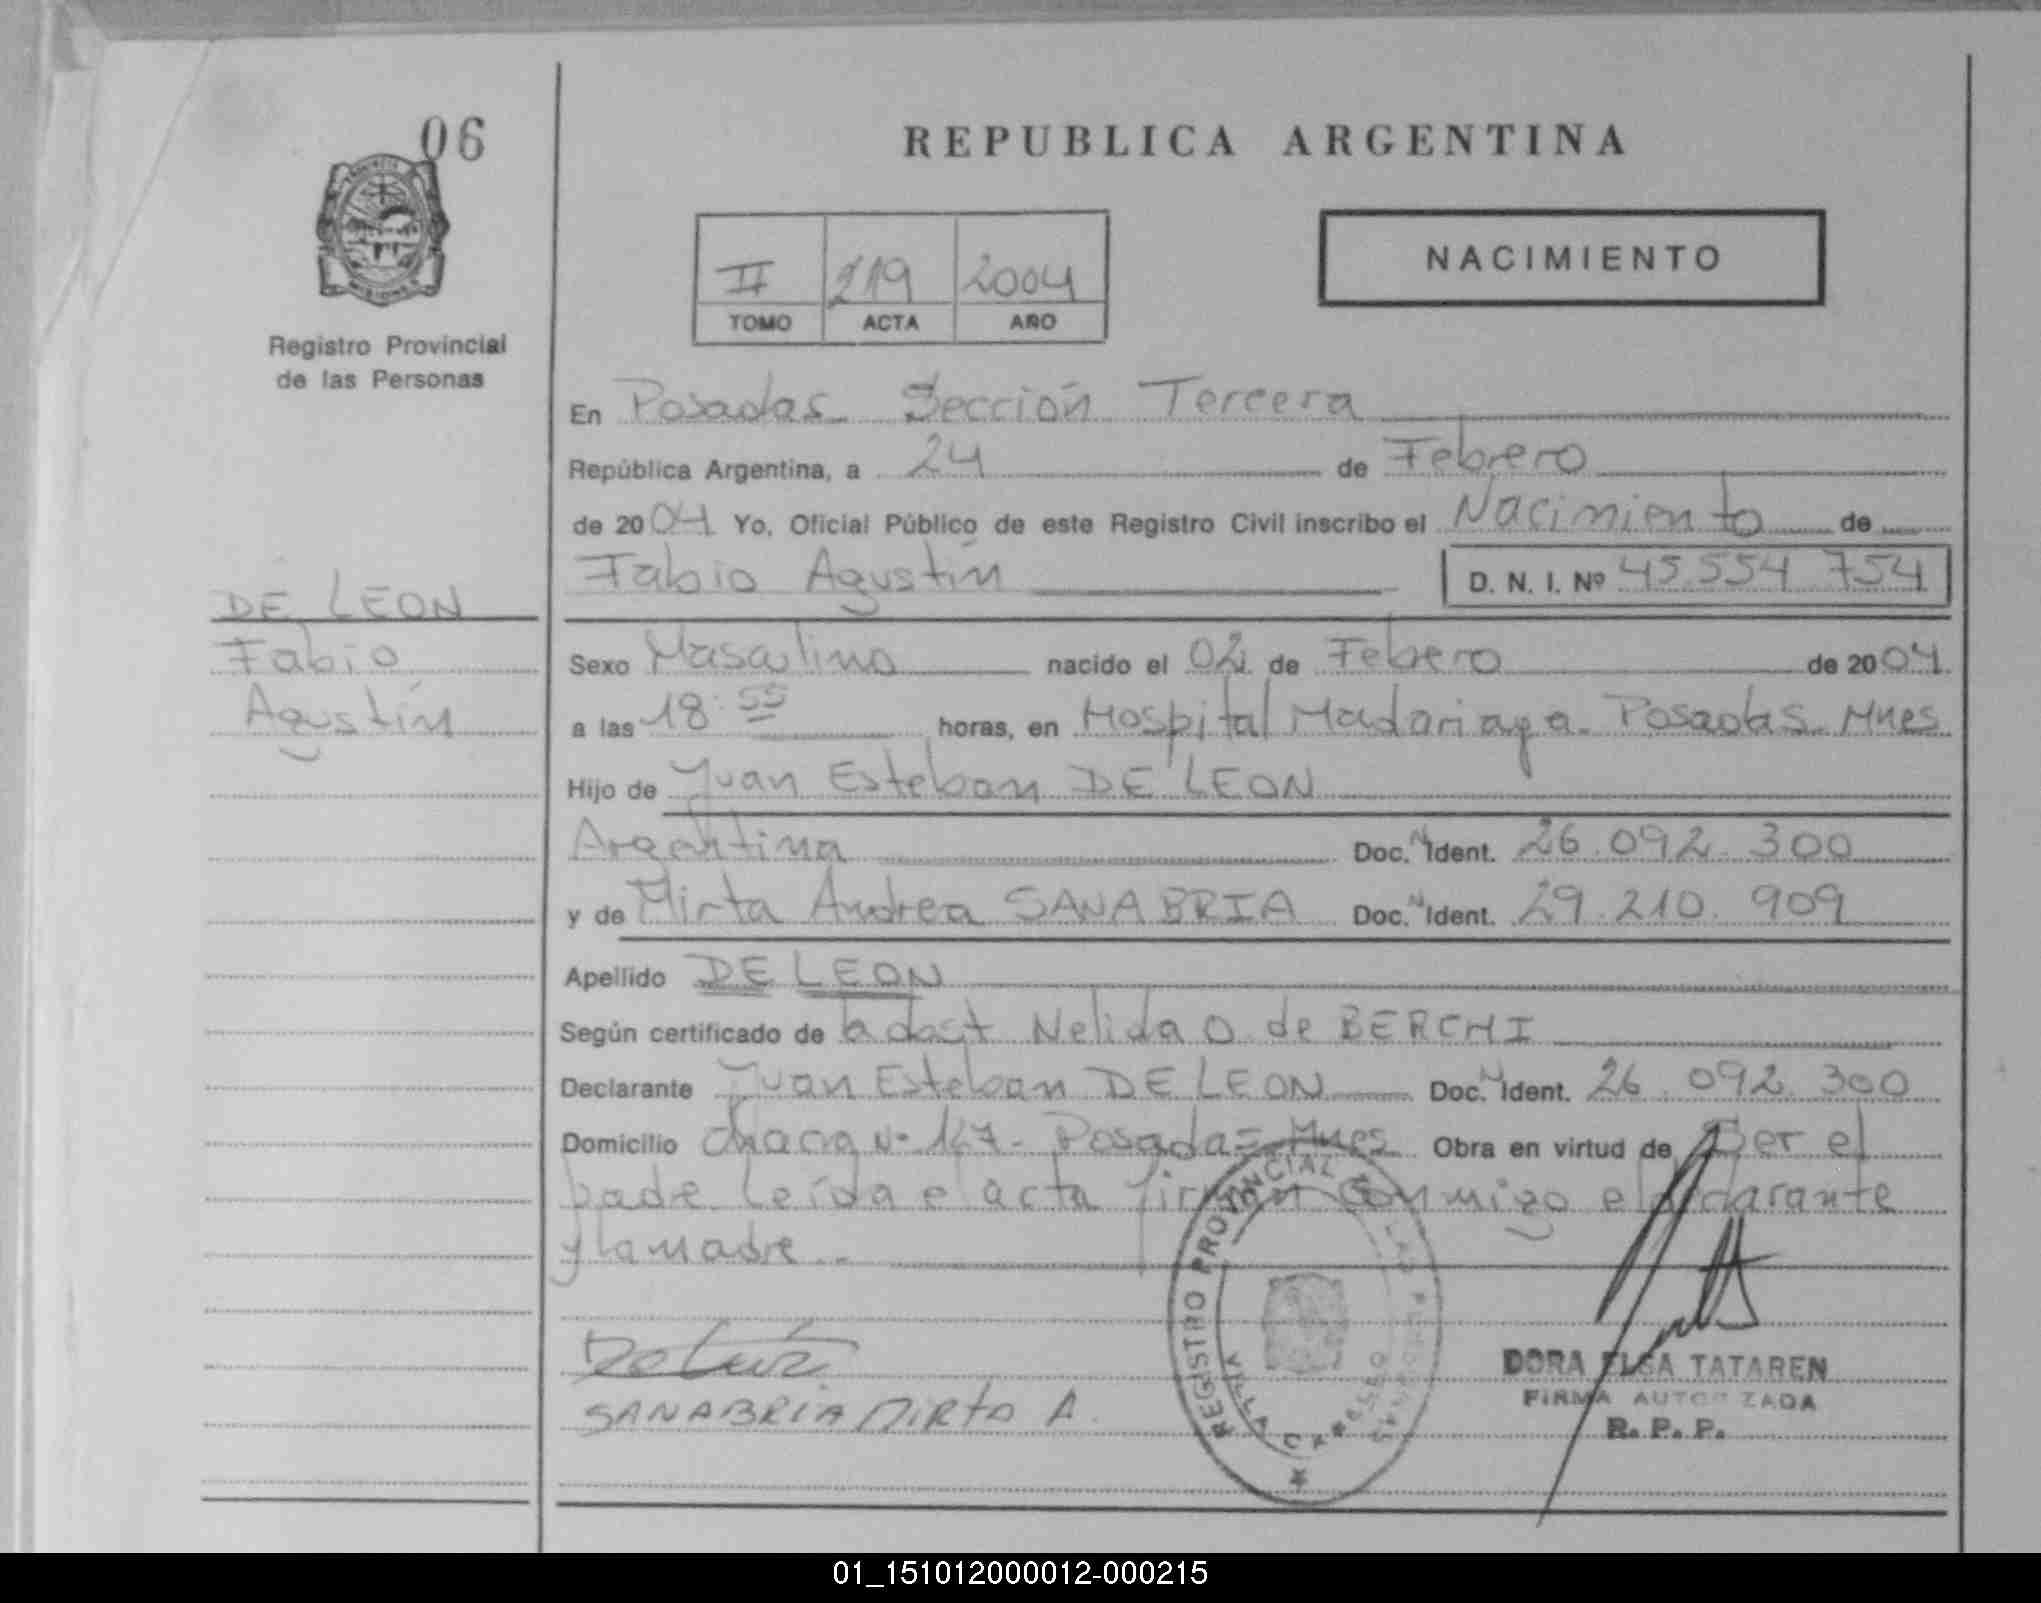 06
REPUBLICA ARGENTINA
NACIMIENTO
II 219 2004
TOMO ACTA AÑO
Registro Provincial
de las Personas
En Posadas Sección Tercera
República Argentina, a 24 de Febrero
de 2004 Yo, Oficial Público de este Registro Civil inscribo el Nacimiento de
Fabio Agustín D. N. I. Nº 45.554 754
DE LEON
Fabio
Agustín
Sexo Masculino nacido el 02 de Febrero de 2004
a las 18:55 horas, en Hospital Madariaga Posadas Mnes
Hijo de Juan Esteban DE LEON
Argentina Doc. N Ident. 26.092.300
y de Mirta Andrea SANABRIA Doc. N Ident. 29.210.909
Apellido DE LEON
Según certificado de la dost Nelida O. de BERCHI
Declarante Juan Esteban DE LEON Doc. N Ident. 26.092.300
Domicilio chacra Nº 127 - Posadas = Mnes Obra en virtud de Ser el
padre leída el acta firman conmigo el declarante
y la madre
REGISTRO PROVINCIAL DE LAS PERSONAS
VILLA CABELLO
MISIONES
SANABRIA MIRTA A.
DORA ELSA TATAREN
FIRMA AUTORIZADA
R. P. P.
01_151012000012-000215